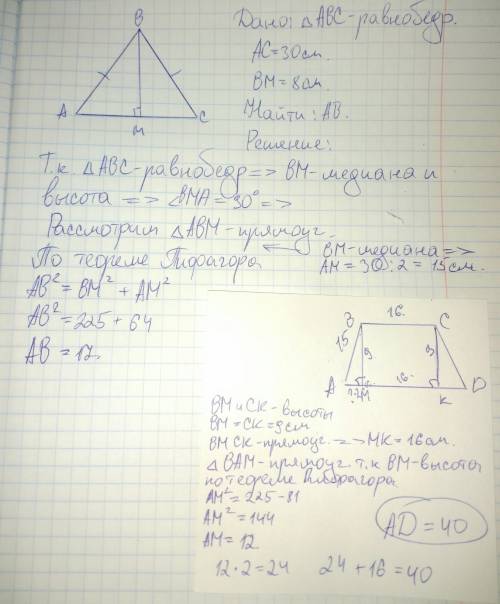 B
A
M
C
Дано: △ABC-равнобедр.
AC=30см.
BM=8см.
Найти: AB.
Решение:
Т.к △ABC-равнобедр=> BM-медиана и
высота => ∠BMA=30°=>
Рассмотрим △ABM-прямоуг.
BM-медиана=>
AM=30:2=15см.
По теореме Пифагора
AB²=BM²+AM²
AB²=225+64
AB=17.
16.
B
C
15
9
9
A
??M
16.
K
D
BM и CK-высоты
BM=CK=9см
BMCK-прямоуг.=>MK=16см.
△BAM-прямоуг. т.к BM-высота
по теореме Пифагора
AM²=225-81
AM²=144
AM=12
AD=40
12·2=24 24+16=40